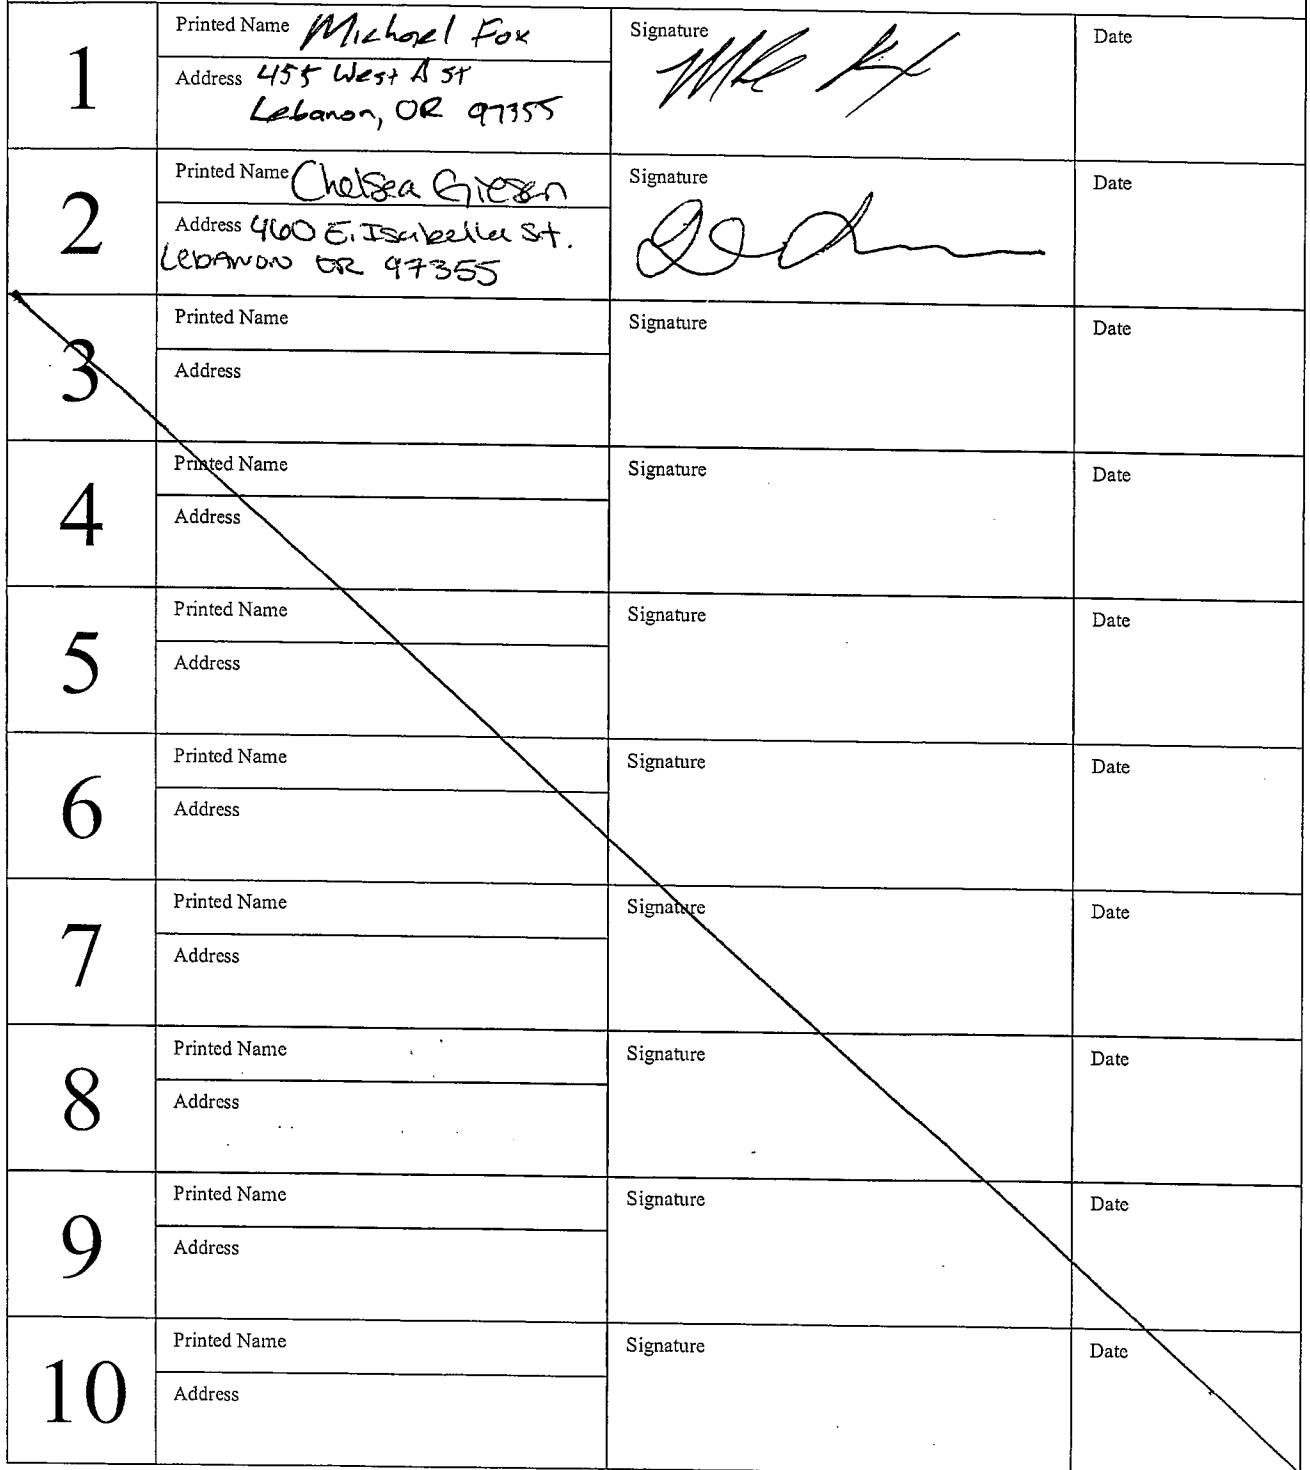 1
Printed Name Michael Fox
Address 455 West A St
Lebanon, OR 97355
Signature
Date
2
Printed Name Chelsea Giesen
Address 460 E. Isabella St.
Lebanon OR 97355
Signature
Date
3
Printed Name
Address
Signature
Date
4
Printed Name
Address
Signature
Date
5
Printed Name
Address
Signature
Date
6
Printed Name
Address
Signature
Date
7
Printed Name
Address
Signature
Date
8
Printed Name
Address
Signature
Date
9
Printed Name
Address
Signature
Date
10
Printed Name
Address
Signature
Date